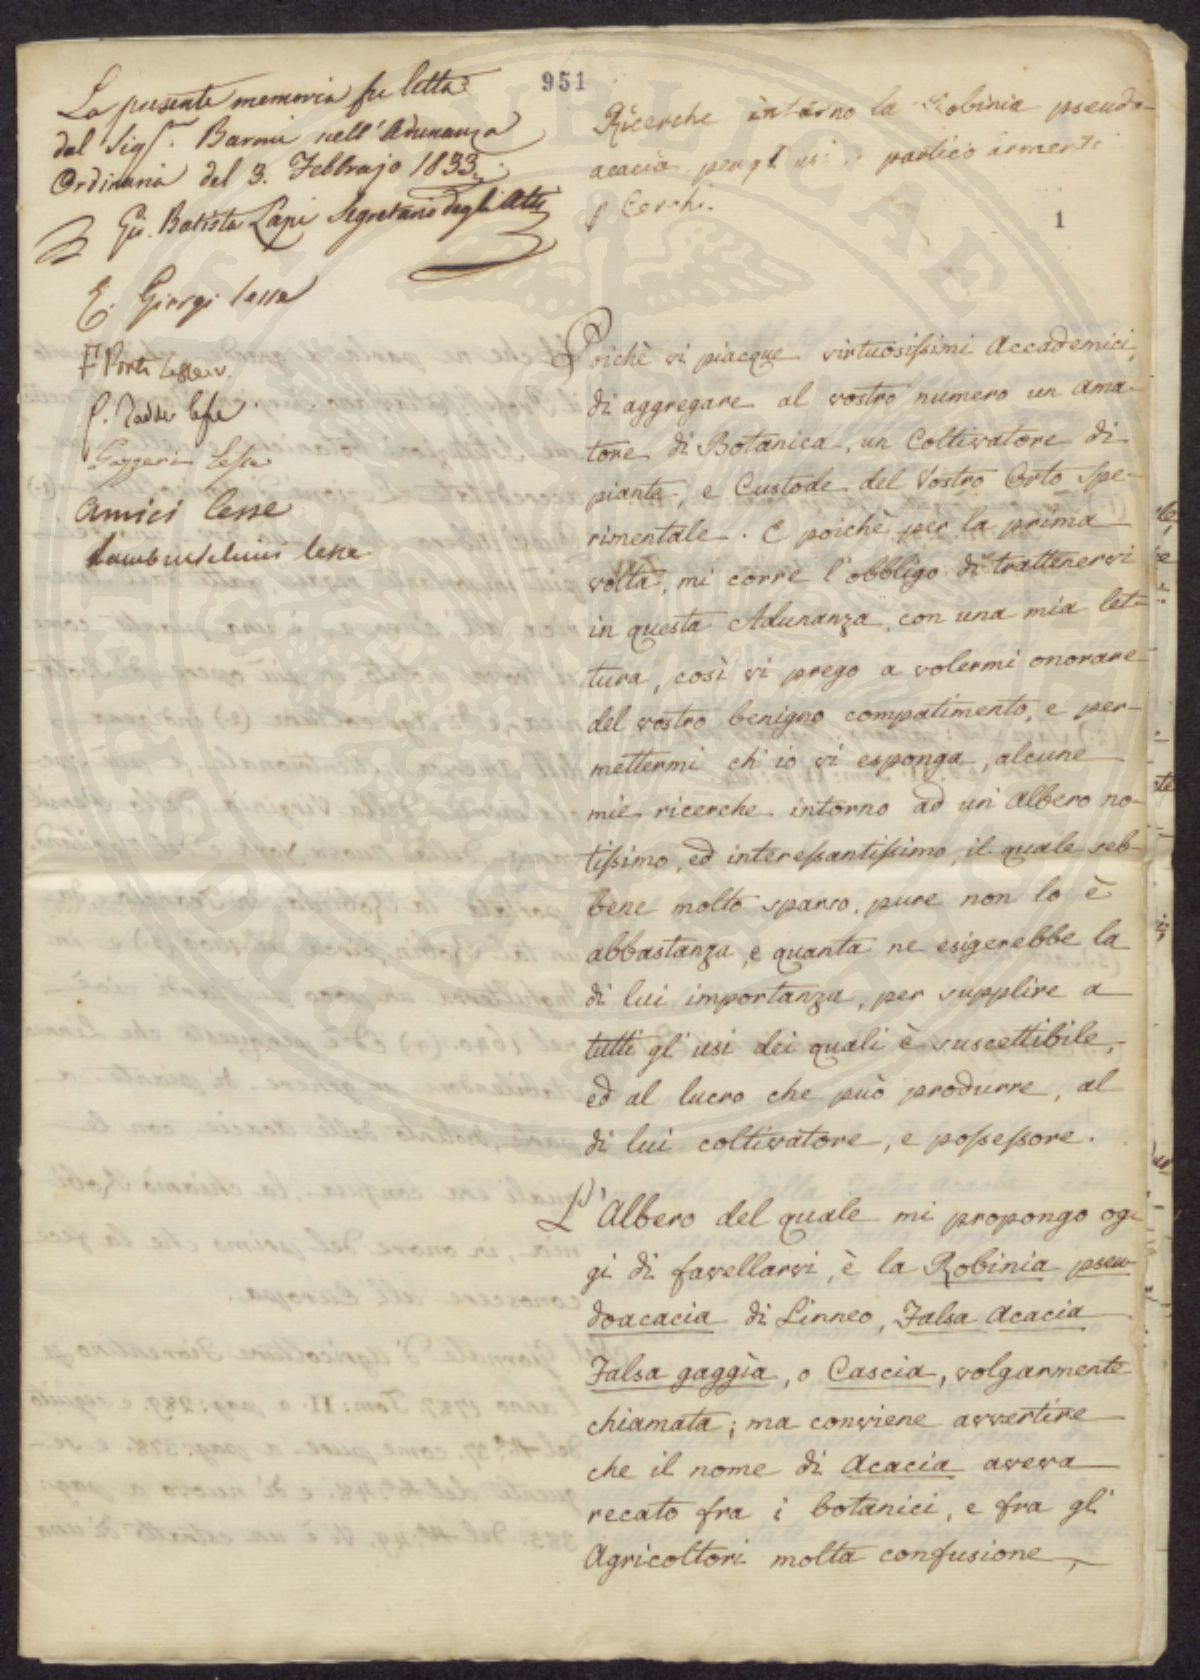 951
La presente memoria fu letta
dal Sig.r Barni nell'Adunanza
Ordinaria del 3. Febbrajo 1833.
Gio. Batista Lapi Segretario degli Atti
E. Giorgi lesse
F Porti lesse
P. Taddei lesse
lesse
Amici lesse
Tamburlini lesse
Ricerche intorno la Robinia pseudo-
acacia, per gl'usi e
p Cerchi.
1
Poichè vi piacque virtuosissimi Accademici,
di aggregare al vostro numero un Ama-
tore di Botanica, un Coltivatore di
piante, e Custode del Vostro Orto Spe-
rimentale. E poichè per la prima
volta, mi corre l'obbligo di trattenervi
in questa Adunanza, con una mia let-
tura, così vi prego a volermi onorare
del vostro benigno compatimento, e per-
mettermi ch'io vi esponga, alcune
mie ricerche intorno ad un'Albero no-
tissimo, ed interessantissimo, il quale seb-
bene molto sparso, pure non lo è
abbastanza, e quanta ne esigerebbe la
di lui importanza, per supplire a
tutti gl'usi dei quali è suscettibile,
ed al lucro che può produrre, al
di lui coltivatore, e possessore.
L'Albero del quale mi propongo og-
gi di favellarvi, è la Robinia pseu-
doacacia di Linneo, Falsa Acacia
Falsa gaggìa, o Cascia, volgarmente
chiamata; ma conviene avvertire
che il nome di Acacia aveva
recato fra i botanici, e fra gli
Agricoltori molta confusione,